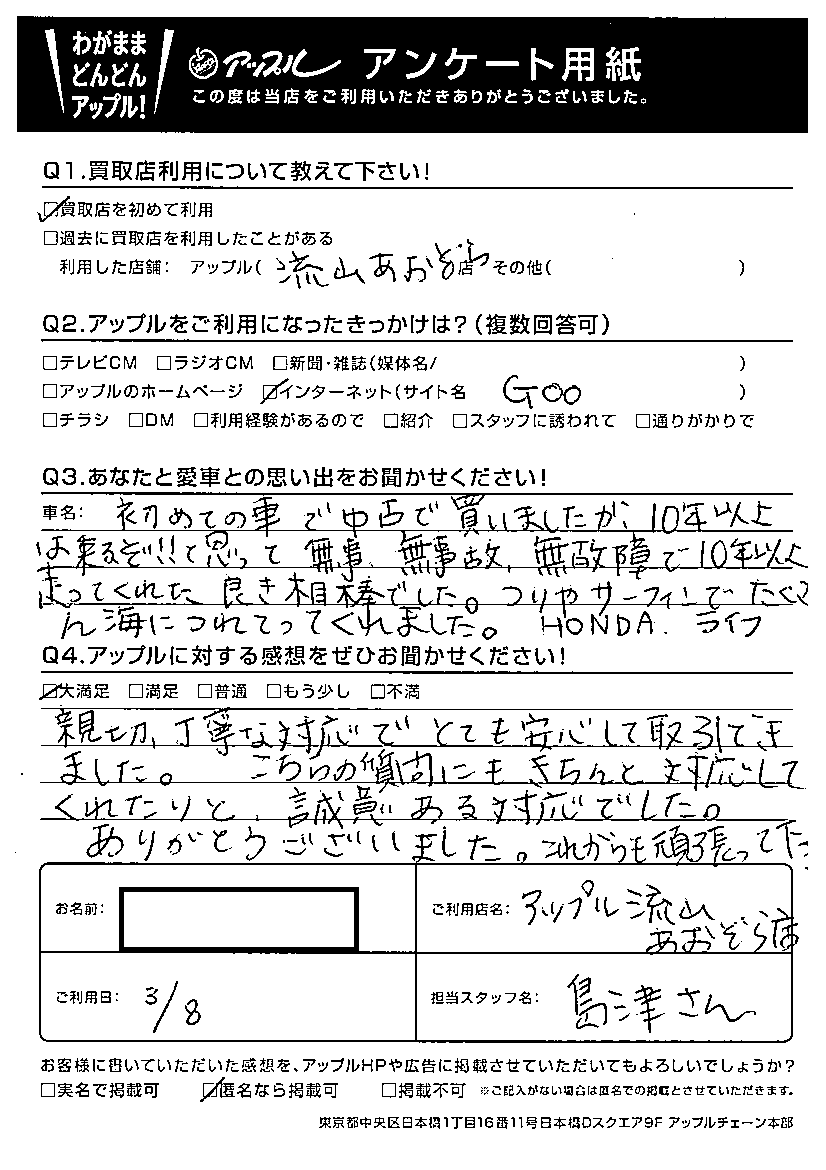 わがまま
どんどん
アップル!
アップル アンケート用紙
この度は当店をご利用いただきありがとうございました。
Q1.買取店利用について教えて下さい!
☑買取店を初めて利用
□過去に買取店を利用したことがある
利用した店舗: アップル( 流山あおぞら店 その他( )
Q2.アップルをご利用になったきっかけは?(複数回答可)
□テレビCM □ラジオCM □新聞・雑誌(媒体名/ )
□アップルのホームページ ☑インターネット(サイト名 Goo )
□チラシ □DM □利用経験があるので □紹介 □スタッフに誘われて □通りがかりで
Q3.あなたと愛車との思い出をお聞かせください!
車名: 初めての車で中古で買いましたが、10年以上
は乗るぞ!!と思って無事、無事故、無故障で10年以上
走ってくれた良き相棒でした。つりやサーフィンでたくさ
ん海につれてってくれました。 HONDA. ライフ
Q4.アップルに対する感想をぜひお聞かせください!
☑大満足 □満足 □普通 □もう少し □不満
親切、丁寧な対応でとても安心して取引でき
ました。 こちらの質問にもきちんと対応して
くれたりと、誠意ある対応でした。
ありがとうございました。これからも頑張って下
お名前:
ご利用店名: アップル流山
あおぞら店
ご利用日: 3/8
担当スタッフ名: 島津さん
お客様に書いていただいた感想を、アップルHPや広告に掲載させていただいてもよろしいでしょうか?
□実名で掲載可 ☑匿名なら掲載可 □掲載不可 ※ご記入がない場合は匿名での掲載とさせていただきます。
東京都中央区日本橋1丁目16番11号日本橋Dスクエア9F アップルチェーン本部